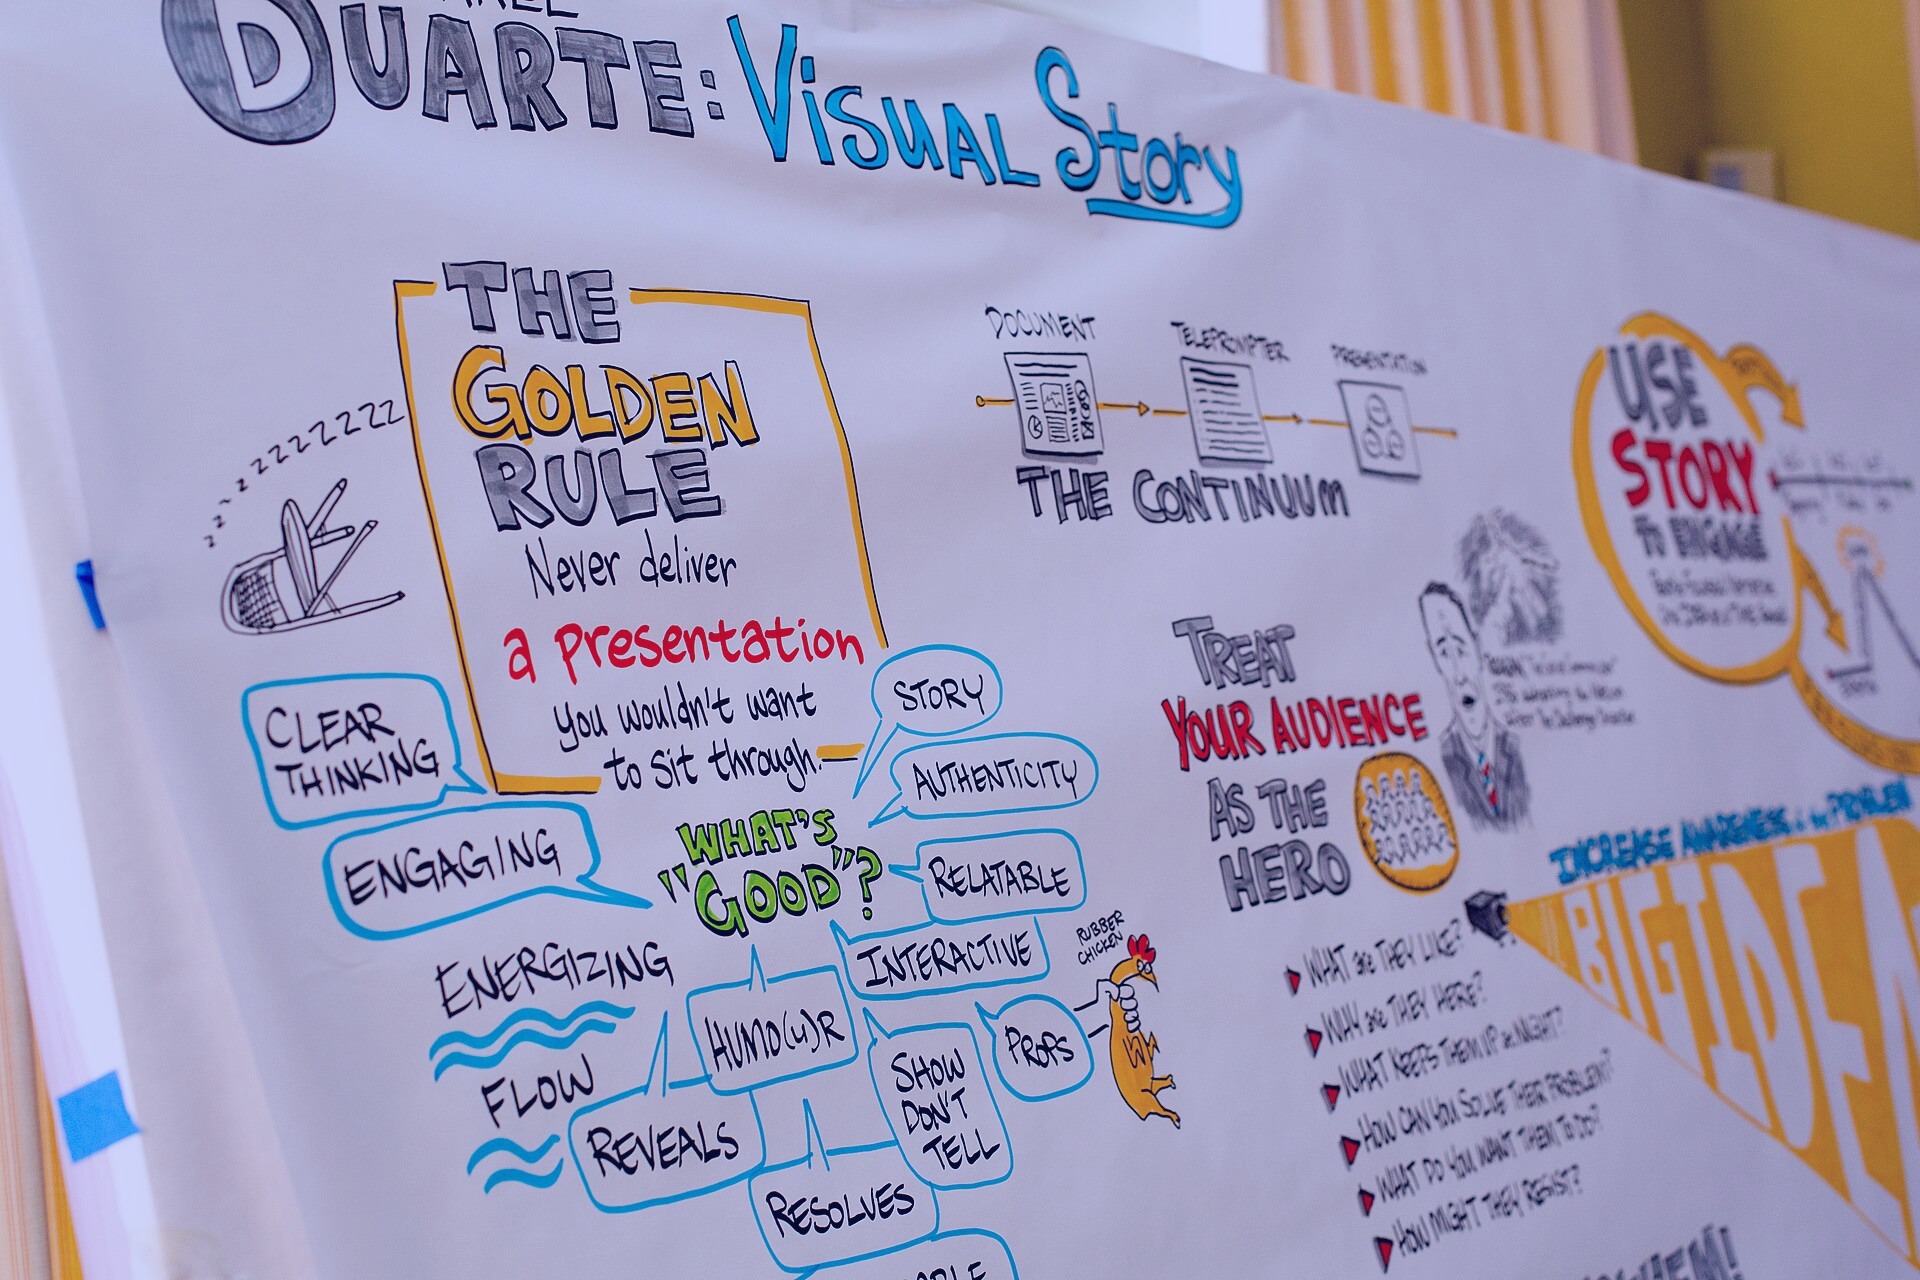 DUARTE: VISUAL Story
THE
GOLDEN
RULE
Never deliver
a presentation
you wouldn't want
to sit through.
zzzzzzzzzzz
CLEAR
THINKING
ENGAGING
ENERGIZING
FLOW
WHAT'S
"GOOD"?
STORY
AUTHENTICITY
RELATABLE
INTERACTIVE
PROPS
RUBBER
CHICKEN
HUMO(U)R
SHOW
DON'T
TELL
REVEALS
RESOLVES
DOCUMENT
TELEPROMPTER
PRESENTATION
THE CONTINUUM
TREAT
YOUR AUDIENCE
AS THE
HERO
WHAT are THEY LIKE?
WHY are THEY HERE?
WHAT KEEPS THEM UP at NIGHT?
HOW CAN YOU SOLVE THEIR PROBLEM?
WHAT DO YOU WANT THEM TO DO?
HOW MIGHT THEY RESIST?
USE
STORY
TO ENGAGE
INCREASE AWARENESS of the PROBLEM
BIG IDEA